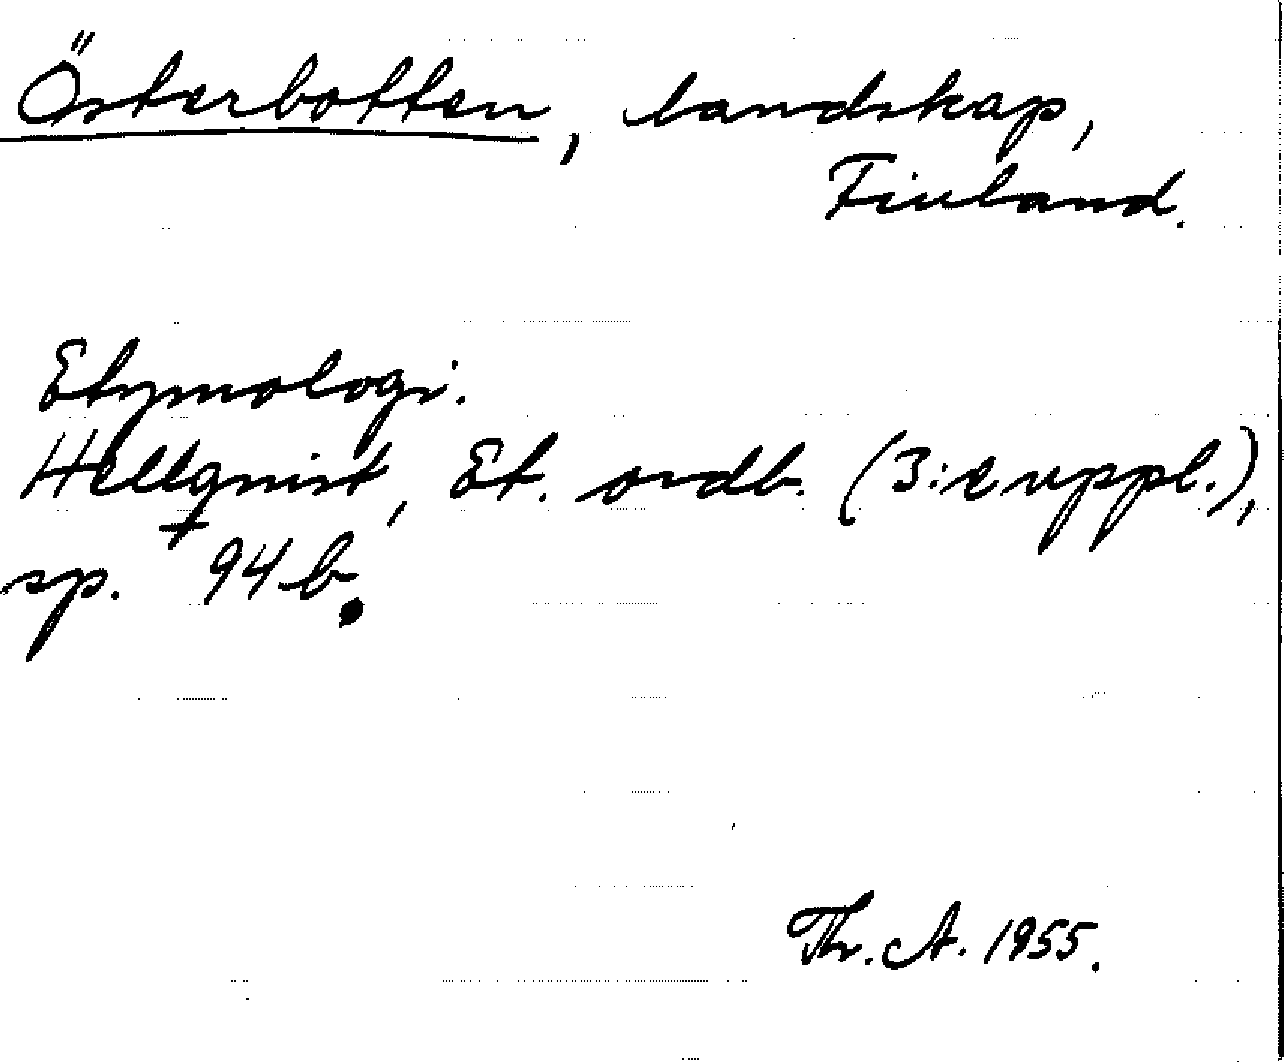 Österbotten, landskap,
Finland.
Etymologi.
Hellquist, Et. ordb. (3:e uppl.),
sp. 94 b.
Th. A. 1955.